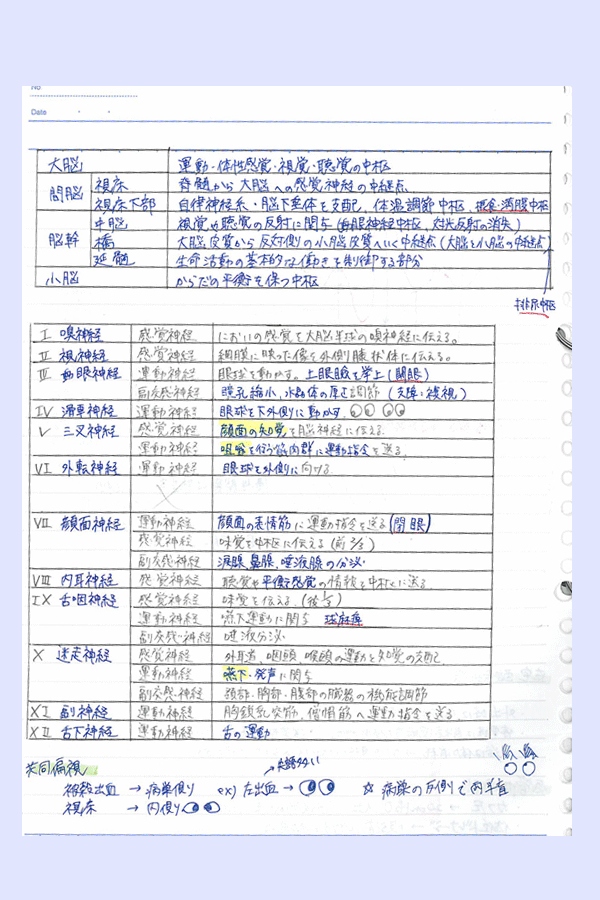 No
Date
大脳 運動・体性感覚・視覚・聴覚の中枢
間脳 視床 脊髄から大脳への感覚神経の中継点
視床下部 自律神経系・脳下垂体を支配、体温調節中枢、摂食・満腹中枢
脳幹 中脳 視覚や聴覚の反射に関与(動眼神経中枢、対光反射の消失)
橋 大脳皮質から反対側の小脳皮質へいく中継点(大脳と小脳の中継点)
延髄 生命活動の基本的な働きを制御する部分
小脳 からだの平衡を保つ中枢
排尿中枢
I 嗅神経 感覚神経 においの感覚を大脳半球の嗅神経に伝える。
II 視神経 感覚神経 網膜に映った像を外側膝状体に伝える。
III 動眼神経 運動神経 眼球を動かす。上眼瞼を挙上(開眼)
副交感神経 瞳孔縮小、水晶体の厚さ調節
IV 滑車神経 運動神経 眼球を下外側に動かす。
V 三叉神経 感覚神経 顔面の知覚を脳神経に伝える
運動神経 咀嚼を行う筋肉群に運動指令を送る
VI 外転神経 運動神経 眼球を外側に向ける
VII 顔面神経 運動神経 顔面の表情筋に運動指令を送る(閉眼)
感覚神経 味覚を中枢に伝える(前2/3)
副交感神経 涙腺、鼻腺、唾液腺の分泌
VIII 内耳神経 感覚神経 聴覚や平衡感覚の情報を中枢に送る
IX 舌咽神経 感覚神経 味覚を伝える。(後1/3)
運動神経 嚥下運動に関与 球麻痺
副交感神経 唾液分泌
X 迷走神経 感覚神経 外耳道、咽頭 喉頭の運動と知覚の支配
運動神経 嚥下・発声に関与
副交感神経 頚部・胸部・腹部の臓器の機能調節
XI 副神経 運動神経 胸鎖乳突筋、僧帽筋へ運動指令を送る。
XII 舌下神経 運動神経 舌の運動
共同偏視
被殻出血 → 病巣側 ex) 左出血 → ☆ 病巣の方側で
視床 → 内側